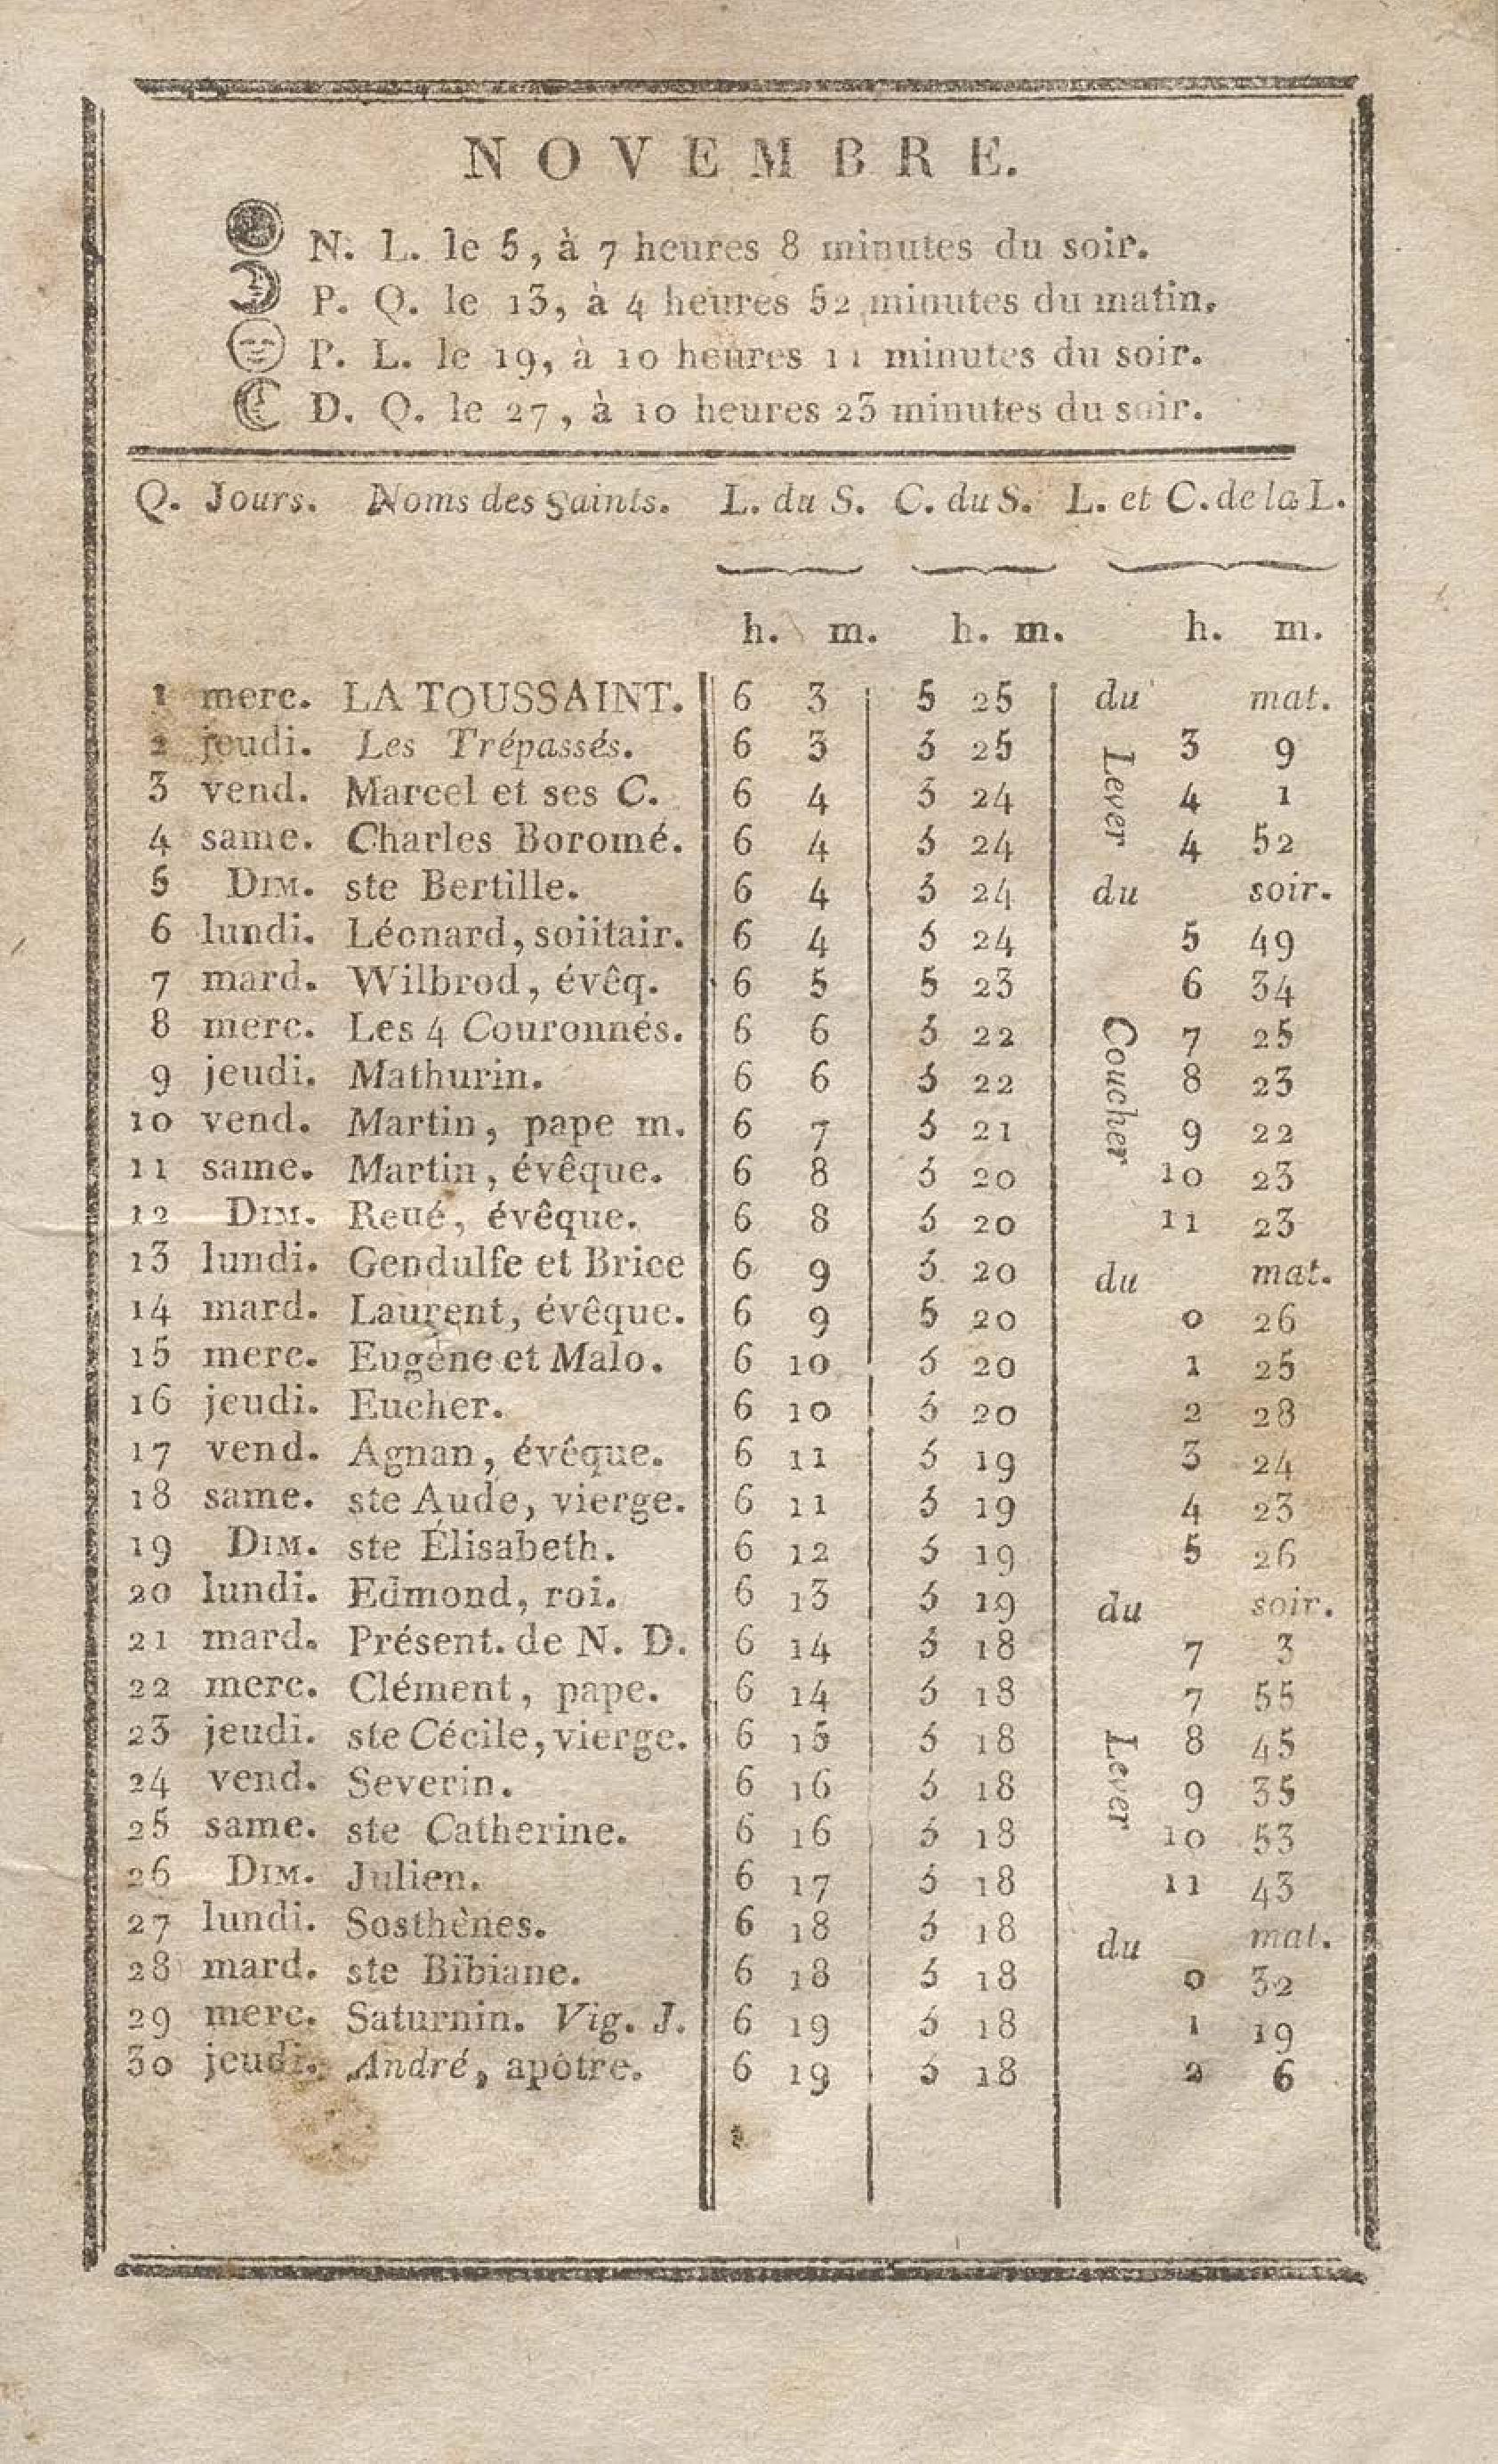 NOVEMBRE.
N. L. le 5, à 7 heures 8 minutes du soir.
P. Q. le 13, à 4 heures 52 minutes du matin.
P. L. le 19, à 10 heures 11 minutes du soir.
D. Q. le 27, à 10 heures 23 minutes du soir.
Q. Jours. Noms des Saints. L. du S. C. du S. L. et C. de la L.
h. m. h. m. h. m.
1 merc. LA TOUSSAINT. 6 3 5 25 du mat.
2 jeudi. Les Trépassés. 6 3 5 25 Lever 3 9
3 vend. Marcel et ses C. 6 4 5 24 4 1
4 same. Charles Boromé. 6 4 5 24 4 52
5 DIM. ste Bertille. 6 4 5 24 du soir.
6 lundi. Léonard, soiitair. 6 4 5 24 5 49
7 mard. Wilbrod, évêq. 6 5 5 23 6 34
8 merc. Les 4 Couronnés. 6 6 5 22 Coucher 7 25
9 jeudi. Mathurin. 6 6 5 22 8 23
10 vend. Martin, pape m. 6 7 5 21 9 22
11 same. Martin, évêque. 6 8 5 20 10 23
12 DIM. Reué, évêque. 6 8 5 20 11 23
13 lundi. Gendulfe et Brice 6 9 5 20 du mat.
14 mard. Laurent, évêque. 6 9 5 20 0 26
15 merc. Eugène et Malo. 6 10 5 20 1 25
16 jeudi. Eucher. 6 10 5 20 2 28
17 vend. Agnan, évêque. 6 11 5 19 3 24
18 same. ste Aude, vierge. 6 11 5 19 4 23
19 DIM. ste Élisabeth. 6 12 5 19 5 26
20 lundi. Edmond, roi. 6 13 5 19 du soir.
21 mard. Présent. de N. D. 6 14 5 18 7 3
22 merc. Clément, pape. 6 14 5 18 7 55
23 jeudi. ste Cécile, vierge. 6 15 5 18 Lever 8 45
24 vend. Severin. 6 16 5 18 9 35
25 same. ste Catherine. 6 16 5 18 10 53
26 DIM. Julien. 6 17 5 18 11 43
27 lundi. Sosthènes. 6 18 5 18 du mat.
28 mard. ste Bibiane. 6 18 5 18 0 32
29 merc. Saturnin. Vig. J. 6 19 5 18 1 19
30 jeudi. André, apôtre. 6 19 5 18 2 6